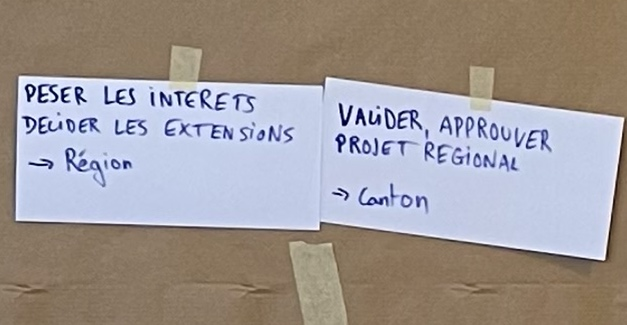 PESER LES INTERETS
DECIDER LES EXTENSIONS
→ Région
VALIDER, APPROUVER
PROJET REGIONAL
→ Canton